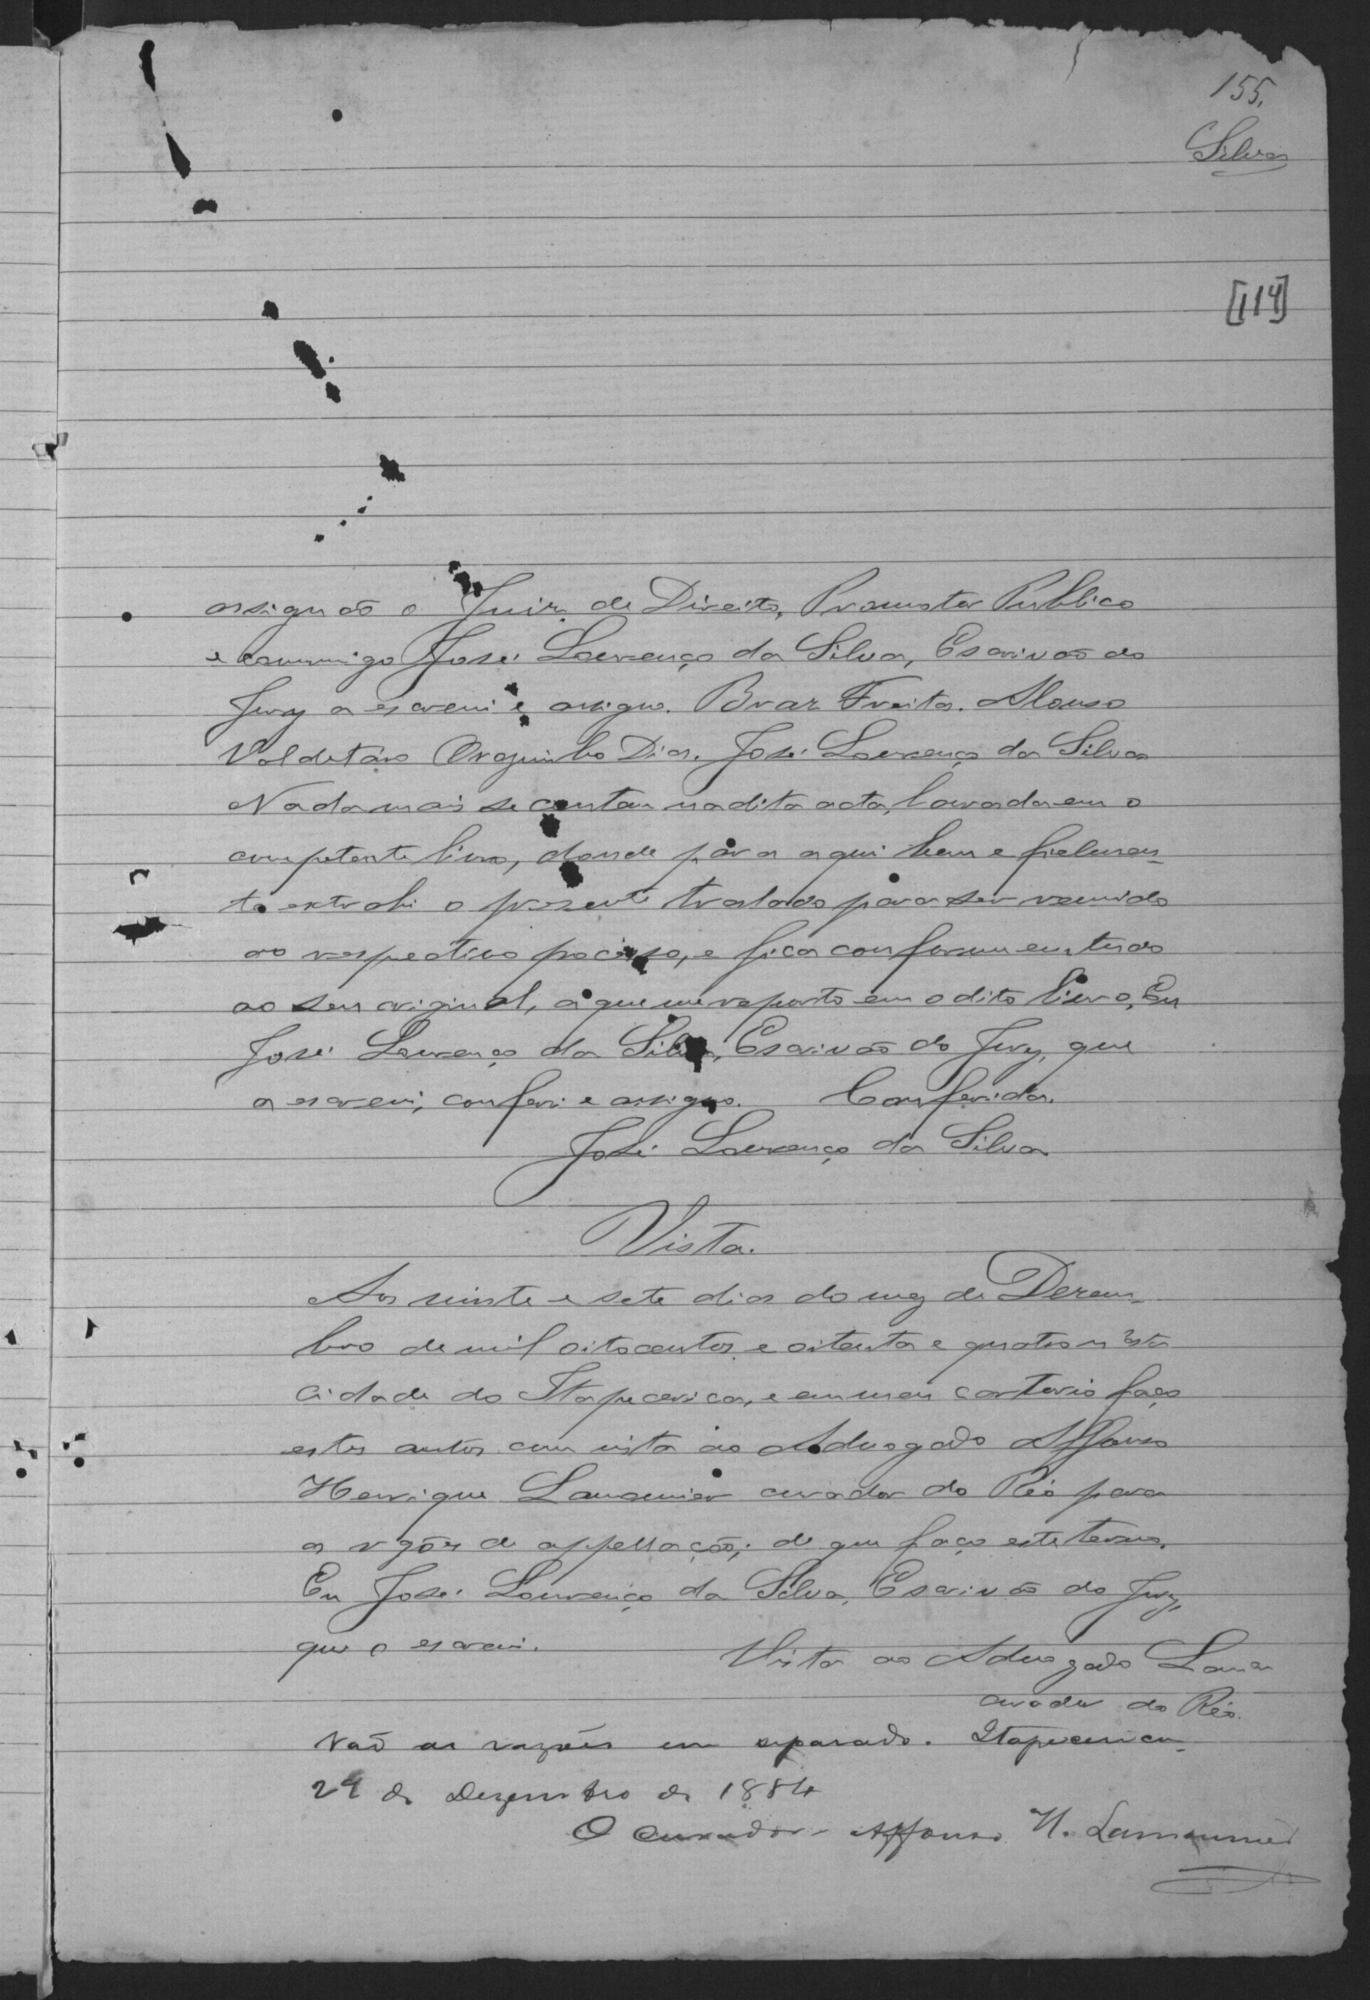 155.
Silva
[114]
assignão o Juiz de Direito, Promotor Publico
e commigo José Lourenço da Silva, Escrivão do
Jury a escrevi e assigno. Braz Freitas. Alonso
Valdetaro Dias. José Lourenço da Silva
Nada mais se contem na dita acta, lavrada em o
competente livro, donde para aqui bem e fielmen-
te extrahi o presente traslado para ser reunido
ao respectivo processo, e fica conforme em tudo
ao seu original, a que me reporto em o dito livro, Eu
José Lourenço da Silva, Escrivão do Jury, que
a escrevi, conferi e assigno. Conferida.
José Lourenço da Silva
Vista.
Aos vinte e sete dias do mez de Dezem-
bro de mil oitocentos e oitenta e quatro n'esta
cidade do Itapecerica, e em meu cartorio faço
estes autos com vista ao Advogado Affonso
Henrique Lamounier curador do Réo para
as rzões de appellação; de que faço este termo.
Eu José Lourenço da Silva, Escrivão do Jury,
que o escrevi.
Vista ao Advogado Lamr
curador do Réo.
Vaõ as razões em separado. Itapecerica
29 de Dezembro de 1884
O curador Affonso H. Lamounier